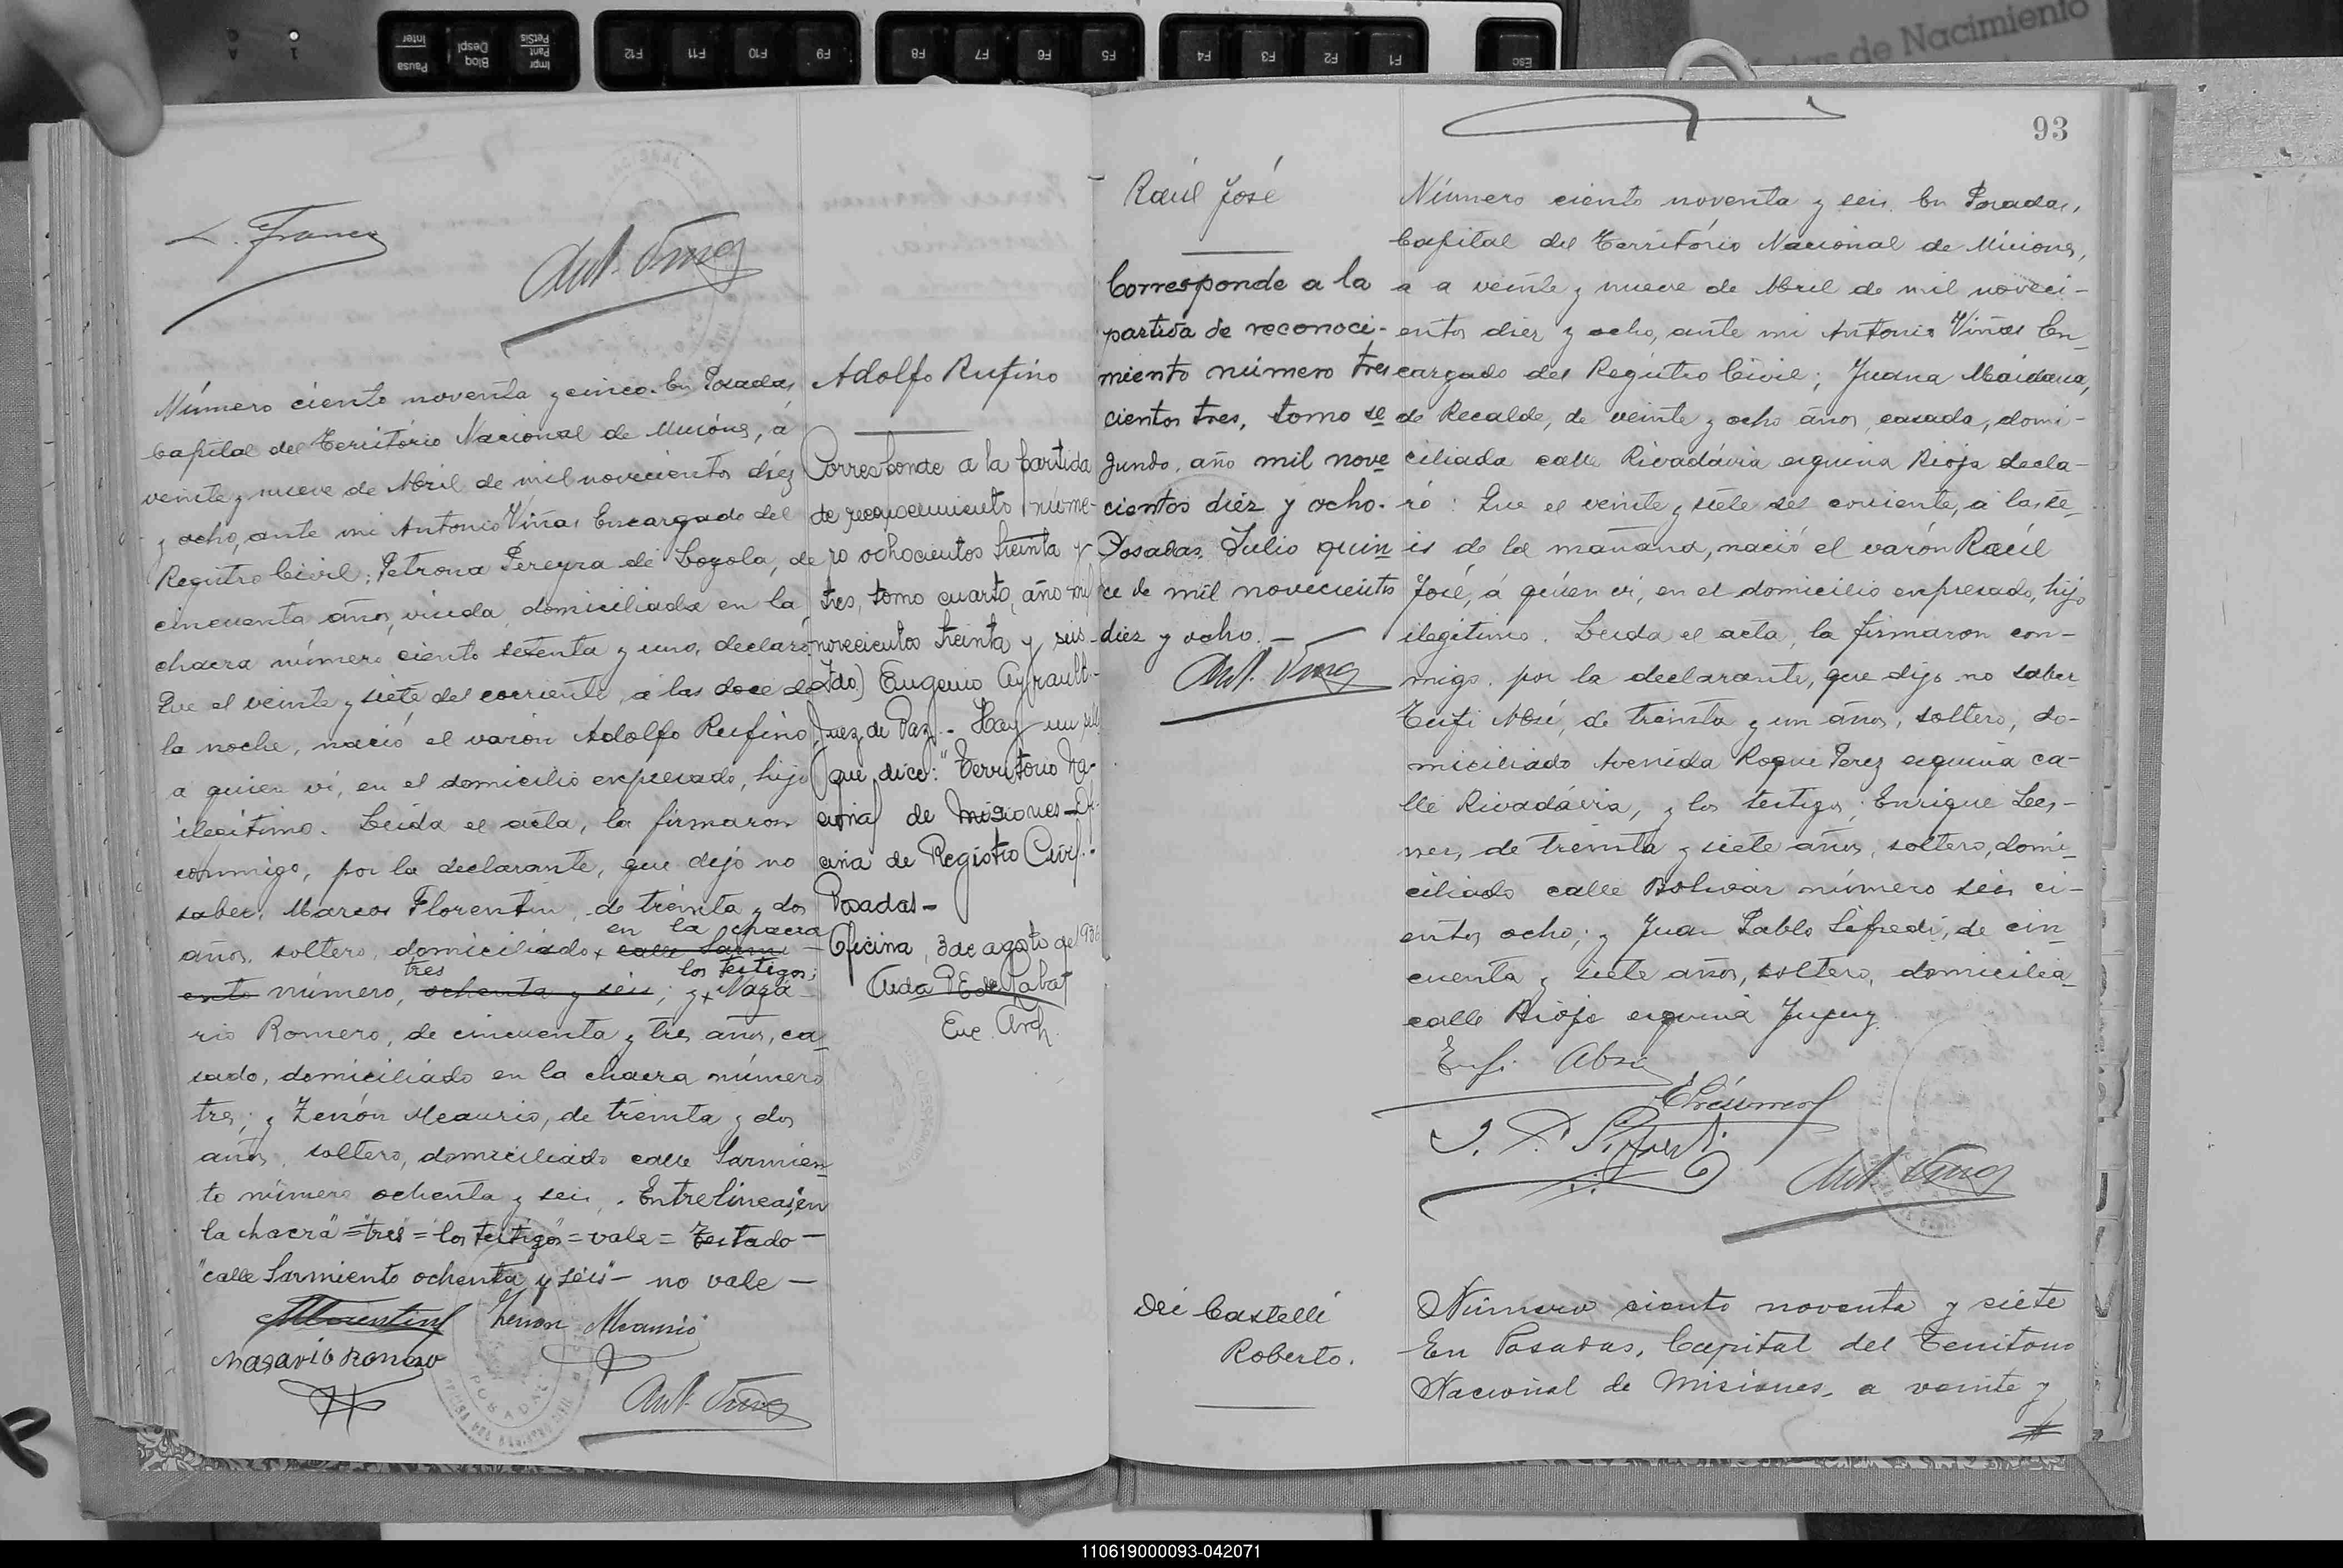 Número ciento noventa y cinco. En Posadas,
Capital del Território Nacional de Misiónes, á
veinte y nueve de Abril de mil novecientos diez
y ocho, ante mi Antonio Viñas Encargado del
Registro Civil; Petrona Pereyra de Logola, de
cincuenta años, viuda, domiciliada en la
chacra número ciento setenta y uno, declaró
Que el veinte y siete del corriente, á las doce de
la noche, nació el varón Adolfo Rufino
a quien ví, en el domicilio expresado, hijo
ilegítimo. Leida el acta, la firmaron
conmigo, por la declarante, que dijo no
saber, Marcos Florentin, de treinta y dos
en la chacra
años, soltero, domiciliado, calle Sarmi-
tres los testigos;
ento número, ochenta y seis; y Naza-
rio Romero, de cincuenta y tres años, ca-
sado, domiciliado en la chacra número
tres; y Zenón Meaurio, de treinta y dos
años, soltero, domiciliado calle Sarmien-
to número ochenta y seis. Entrelineas "en
la chacra" = "tres" = "los testigos" = vale = Testado -
"calle Sarmiento ochenta y seis" - no vale -
Zenon Meaurio
Nasario Romero
Adolfo Rufino
Corresponde a la partida
de reconocimiento núme-
ro ochocientos treinta y
tres, tomo cuarto, año mil
novecientos treinta y seis -
Fdo) Eugenio Ayrault -
Juez de Paz. - Hay un sello
que dice: "Territorio Na-
cional de Misiones - Ofi-
cina de Registro Civil."
Posadas -
Oficina, 3 de agosto de 1936
Enc. Arch.
93
Raúl José
Corresponde a la
partida de reconoci-
miento número tres
cientos tres, tomo se
gundo, año mil nove
cientos diez y ocho.
Posadas, Julio quin
ce de mil novecientos
diez y ocho. -
Número ciento noventa y seis. En Posadas,
Capital del Território Nacional de Misiones,
a a veinte y nueve de Abril de mil noveci-
entos diez y ocho, ante mi Antonio Viñas En-
cargado del Registro Civil; Juana Maidana,
de Recalde, de veinte y ocho años, casada, domi-
ciliada calle Rivadávia esquina Rioja decla-
ró: Que el veinte y siete del corriente, á las se-
is de la mañana, nació el varón Raúl
José, á quien ví, en el domicilio expresado, hijo
ilegítimo. Leida el acta, la firmaron con-
migo, por la declarante, que dijo no saber
de treinta y un años, soltero, do-
miciliado Avenida Roque Perez esquina ca-
lle Rivadávia, y los testigos; Enrique
de treinta y siete años, soltero, domi-
ciliado calle Bolivar número seis ci-
entos ocho; y Juan Pablo Sifredi, de cin-
cuenta y siete años, soltero, domicilia-
calle Rioja esquina Jujuy.
Dei Castelli
Roberto.
Número ciento noventa y siete
En Posadas, Capital del Territorio
Nacional de Misiones, a veinte y
110619000093-042071